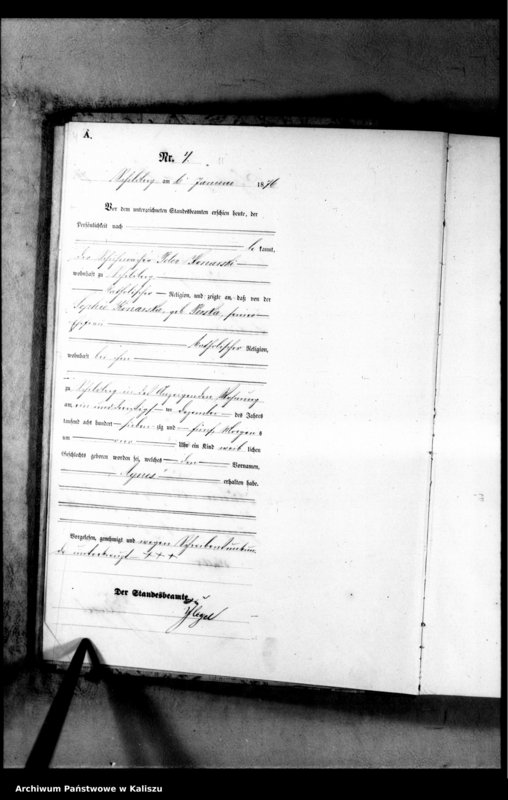 A.
Nr. 4.
Schildberg am 6 Januar 1876
Vor dem unterzeichneten Standesbeamten erschien heute, der
Persönlichkeit nach
be kannt,
der Peter Konarski
wohnhaft zu Schildberg
katholischer Religion, und zeigte an, daß von der
Sophie Konarska, geb. seiner
Ehefrau
katholischer Religion,
wohnhaft bei ihm
zu Schildberg in des Anzeigenden Wohnung
am ein und dreißigsten Dezember des Jahres
tausend acht hundert sieben zig und fünf Morgens
um Uhr ein Kind weib lichen
Geschlechts geboren worden sei, welches den Vornamen
Agnes erhalten habe.
Vorgelesen, genehmigt und wegen Schreibensunkun
de unterkreuzt + + +
Der Standesbeamte.
Archiwum Państwowe w Kaliszu